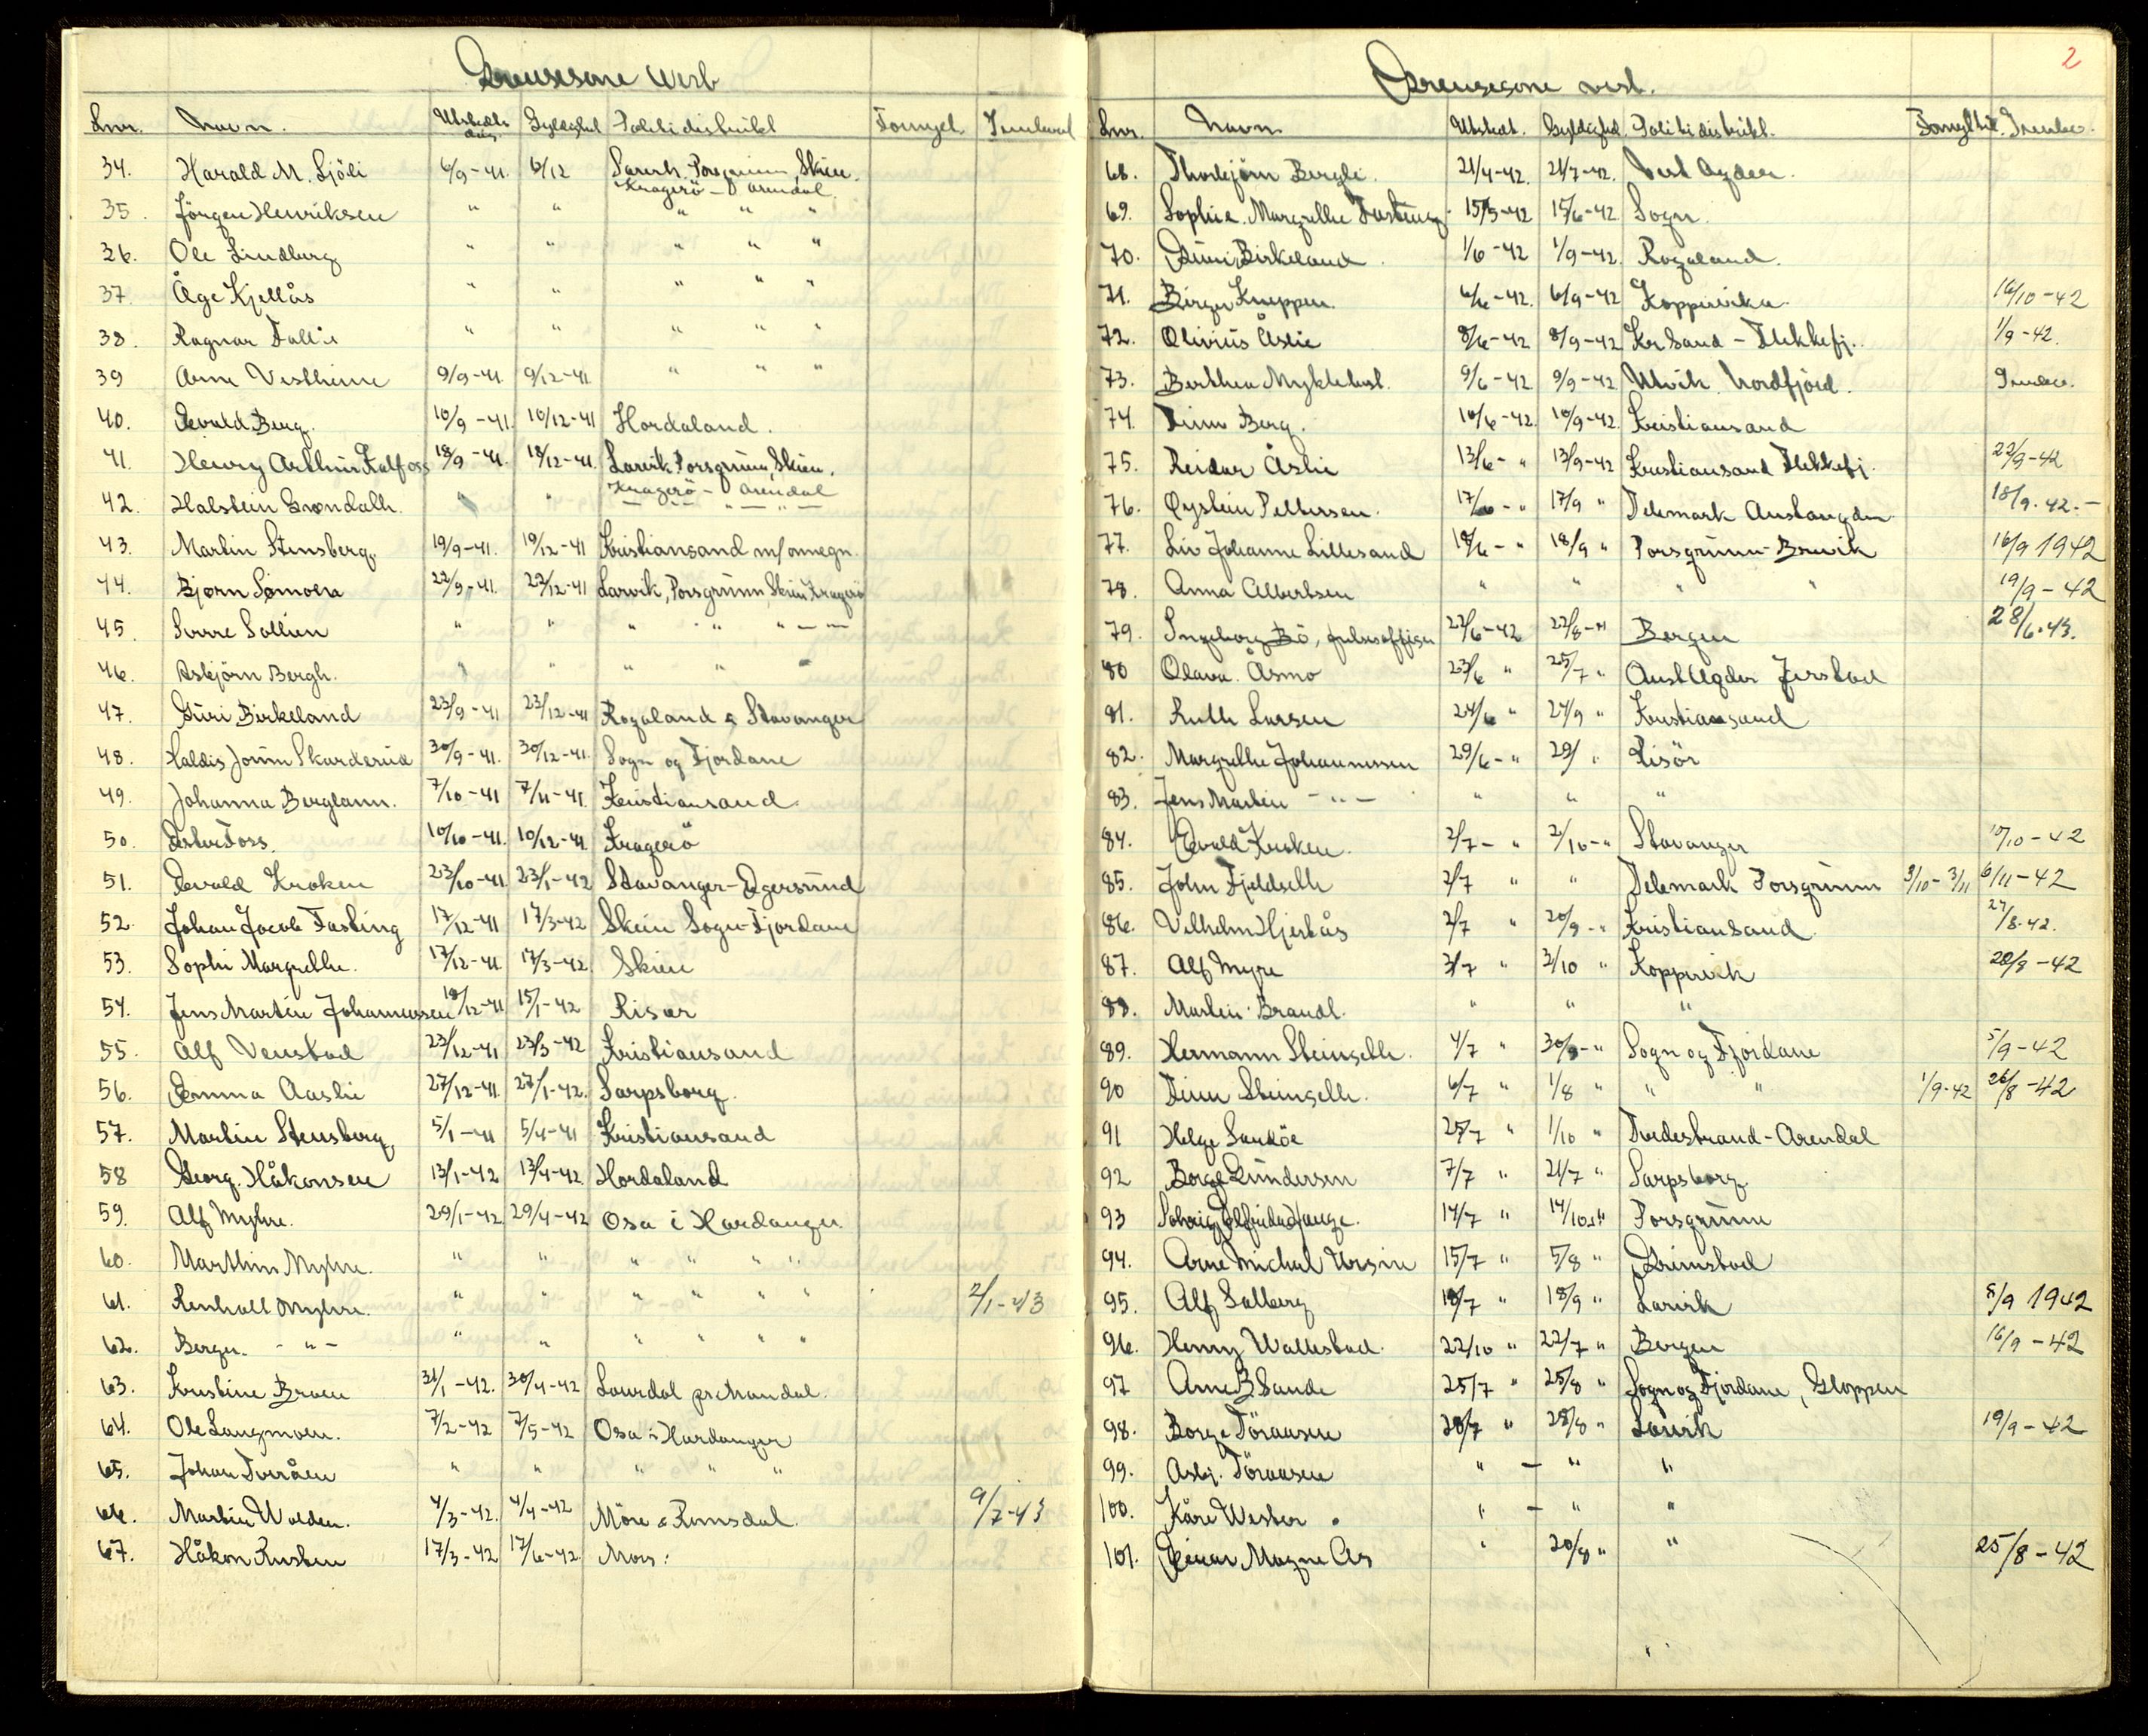 Grensesone vest
Lnr. Navn. Utstedt dag. Gyldighet Politidistrikt Fornyet Innlevert
34. Harald M. Sjöli 6/9-41. 6/12 Larvik, Porsgrunn, Skien. Kragerö - Arendal
35. Jörgen Henriksen " " " " "
36. Ole Lindberg " " " " "
37. Åge Kjellås " " " " "
38. Ragnar " " " " "
39 Arne Vestheim 9/9-41. 9/12-41 " " "
40. Evald Berg. 10/9-41. 10/12-41 Hordaland.
41. Henry Arthur Kalfoss 18/9-41. 18/12-41. Larvik, Porsgrunn, Skien. Kragerö - Arendal
42. Halstein Grøndalh. " " — " —
43. Martin Stensberg. 19/9-41. 19/12-41 Kristiansand m/omegn.
44. Bjørn Sømoen 22/9-41. 22/12-41 Larvik, Porsgrunn, Skien Kragerö
45. Sverre Sollien " " " " " — " —
46. Asbjörn Bergh. " " " " "
47. Guri Birkeland 23/9-41 23/12-41 Rogaland & Stavanger
48. Haldis Jorun Skarderud 30/9-41. 30/12-41. Sogn og Fjordane
49. Johanna Berglann. 7/10-41 7/11-41. Kristiansand.
50. Ester Foss. 10/10-41. 10/12-41. Kragerö
51. Evald Kroken 23/10-41. 23/1-42 Stavanger-Egersund
52. Johan Jacob Fasting 17/12-41 17/3-42 Skien Sogn-Fjordane
53. Sophi Margrethe. 17/12-41. 17/3-42. Skien
54. Jens Martin Johannessen 18/12-41 15/1-42 Risør
55. Alf Venstad 23/12-41 23/3-42 Kristiansand
56. Emma Aaslie 27/12-41. 27/1-42. Sarpsborg.
57. Martin Stensberg. 5/1-41 5/4-41 Kristiansand
58 Georg. Håkonsen 13/1-42 13/4-42. Hordaland
59. Alf Myhre. 29/1-42. 29/4-42 Osa i Hardanger.
60. Marthin Myhre. " " " " " "
61. Renhall Myhre. " " " " " " 2/1-43
62. Berger. - " - " " " " " "
63. Kristine Braen 31/1-42. 30/4-42 Laudal pr. Mandal.
64. Ole Langmoen. 7/2-42 7/5-42 Osa i Hardanger
65. Johan Tveråen " " " " "
66. Martin Wolden. 4/3-42. 4/4-42 Möre & Romsdal. 9/7-43
67. Håkon Rusten 17/3-42 17/6-42. Mois.
2
Grensesone vest.
Lnr. Navn Utstedt. Gyldighet. Politidistrikt. Fornyet til. Innlev.
68. Thorbjörn Bergli. 21/4-42. 21/7-42. Vest Agder.
69. Sophie Margrethe Fasting 15/5-42 15/6-42. Sogn.
70. Guri Birkeland. 1/6-42 1/9-42. Rogaland.
71. Birger Kneppen. 6/6-42. 6/9-42 Koppervika. 16/10-42
72. Olivius Åslie 8/6-42 8/9-42 Kr Sand - Flekkefj. 1/9-42.
73. Berthea Myklebust. 9/6-42 9/9-42. Ulvik. Nordfjord. Innlev.
74. Finn Berg. 10/6-42. 10/9-42. Kristiansand
75. Reidar Åslie 13/6- " 13/9-42 Kristiansand Flekkefj. 22/9-42
76. Øystein Pettersen. 17/6 - " 17/9 " Telemark Austangden 18/9-42.-
77. Liv Johanne Lillesand 18/6 - " 18/9 " Porsgrunn-Brevik 16/9 1942
78. Anna Albertsen " " " " 19/9-42
79. Ingeborg Bö, 22/6-42 22/8-" Bergen 28/6-43.
80 Olava. Åsmo 23/6 " 25/7 " Aust Agder Jerstad
81. Ruth Larsen 24/6 " 24/9 " Kristiansand
82. Margrethe Johannessen 29/6- " 29/ " Risör
83. Jens Martin - " - " " "
84. Evald Kroken. 2/7- " 2/10- " Stavanger 10/10-42
85. John Fjeldseth 2/7 " " Telemark Porsgrunn 3/10-3/11 6/11-42
86. Vilhelm Hjertås 2/7 " 20/9-" Kristiansand 27/8-42.
87. Alf Myre 3/7 " 3/10 " Koppervik 28/8-42
88. Martin Brandl. " " "
89. Hermann Steinseth. 4/7 " 30/9-" Sogn og Fjordane 5/9-42
90 Finn Steinseth. 6/7 " 1/8 " " " 1/9-42 26/8-42
91 Helge Sandöe 25/7 " 1/10 " Tvedestrand-Arendal
92 Borge Gundersen 7/7 " 21/7 " Sarpsborg.
93 Solveig Alfrida Hauge. 14/7 " 14/10 " Porsgrunn
94. Arne Michal Ursin 15/7 " 5/8 " Grimstad
95. Alf Solberg 18/7 " 18/9 " Larvik 8/9 1942
96. Henny Wallestad. 22/10 " 22/7 " Bergen 16/9-42
97 Arne B Sande 25/7 " 25/8 " Sogn og Fjordane, Gloppen
98. Borge Töraasen 28/7 " 28/8 " Larvik 19/9-42
99. Asbj. Töraasen " - " "
100. Kåre Wester . " - " "
101. Einar Magne Ås " 20/8 " " 25/8-42